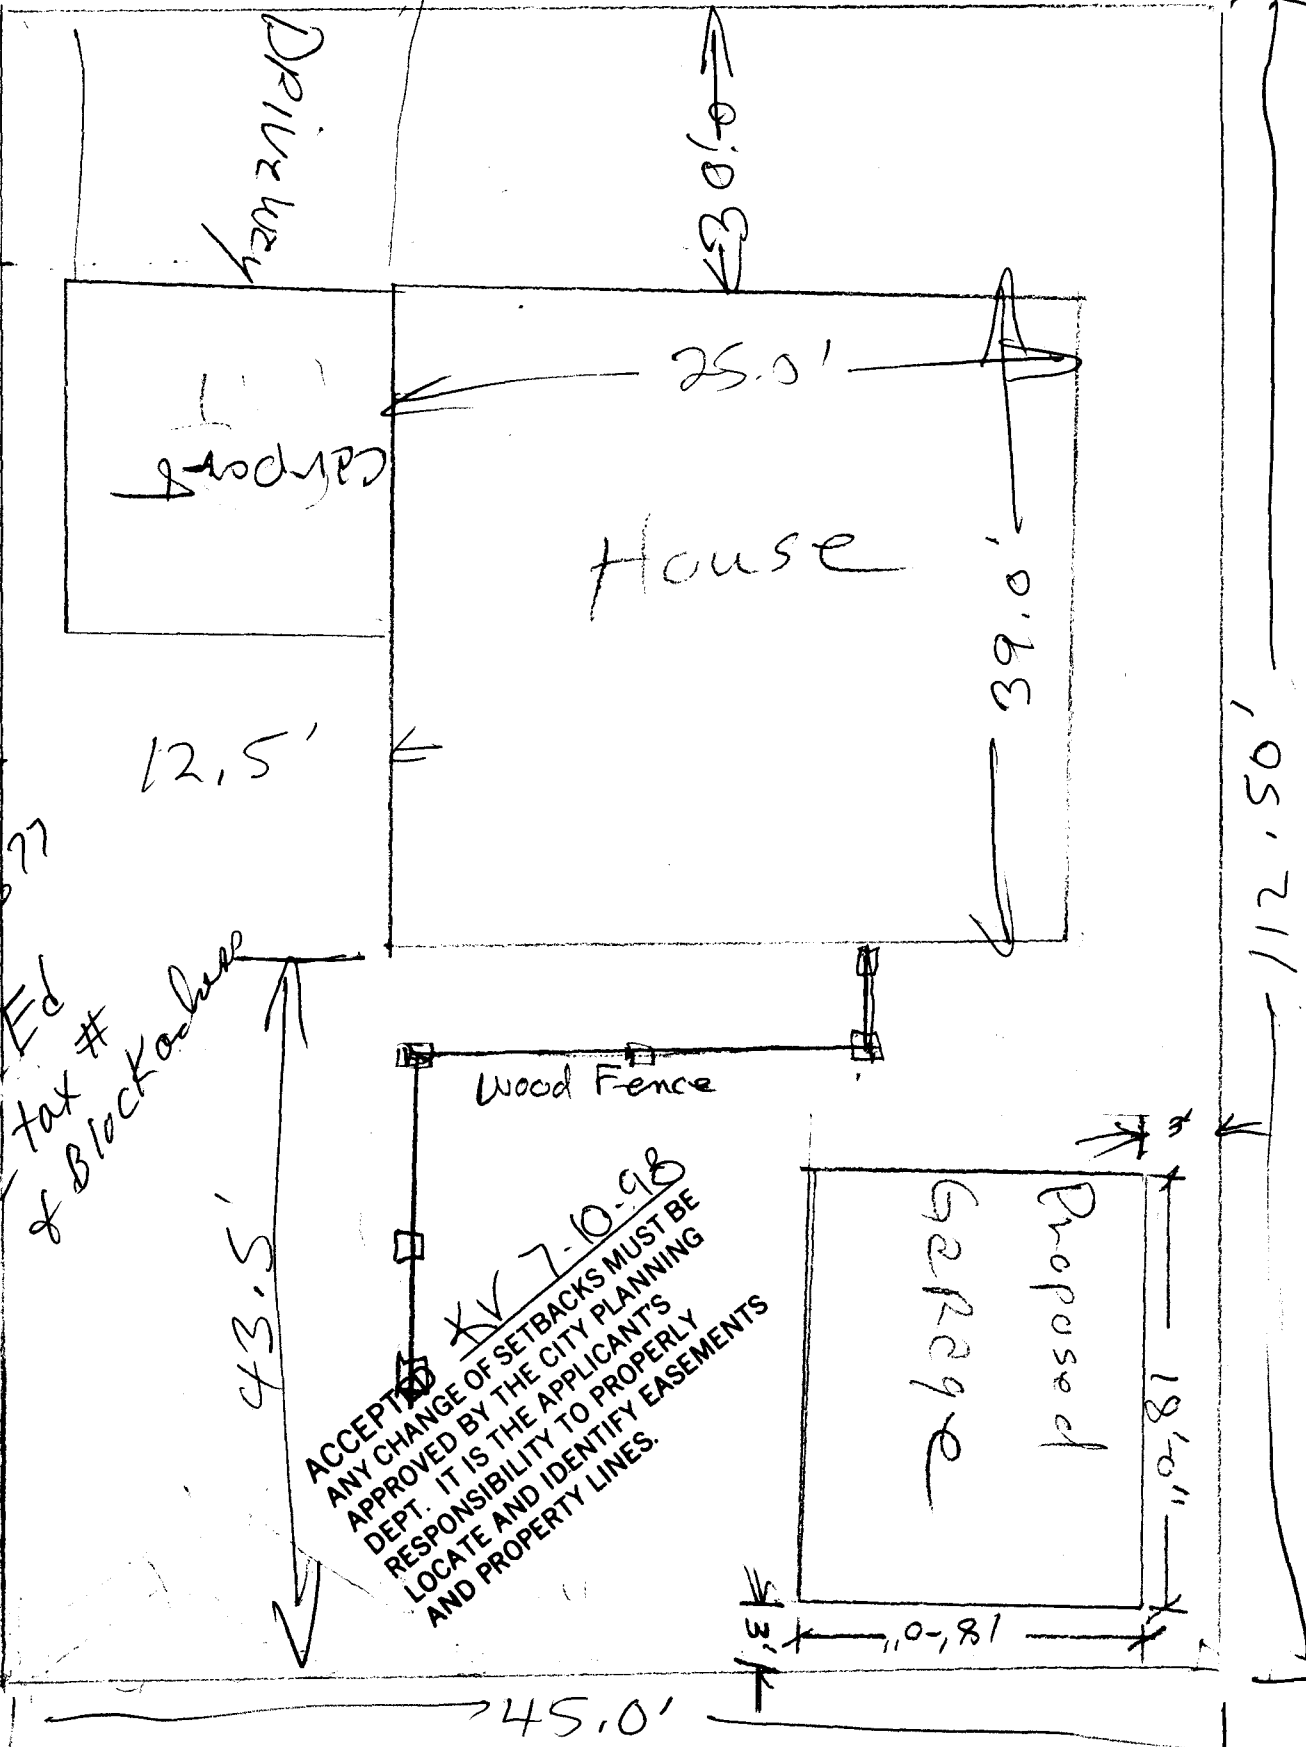 Driveway
30'-0
25.0'
Carport
House
39.0'
12.5'
112.50'
77
Ed
tax #
& Block
Wood Fence
43.5'
3'
KV 7-10-98
ACCEPTED
ANY CHANGE OF SETBACKS MUST BE
APPROVED BY THE CITY PLANNING
DEPT. IT IS THE APPLICANT'S
RESPONSIBILITY TO PROPERLY
LOCATE AND IDENTIFY EASEMENTS
AND PROPERTY LINES.
Proposed
Garage
18'-0"
3'
18'-0"
45.0'